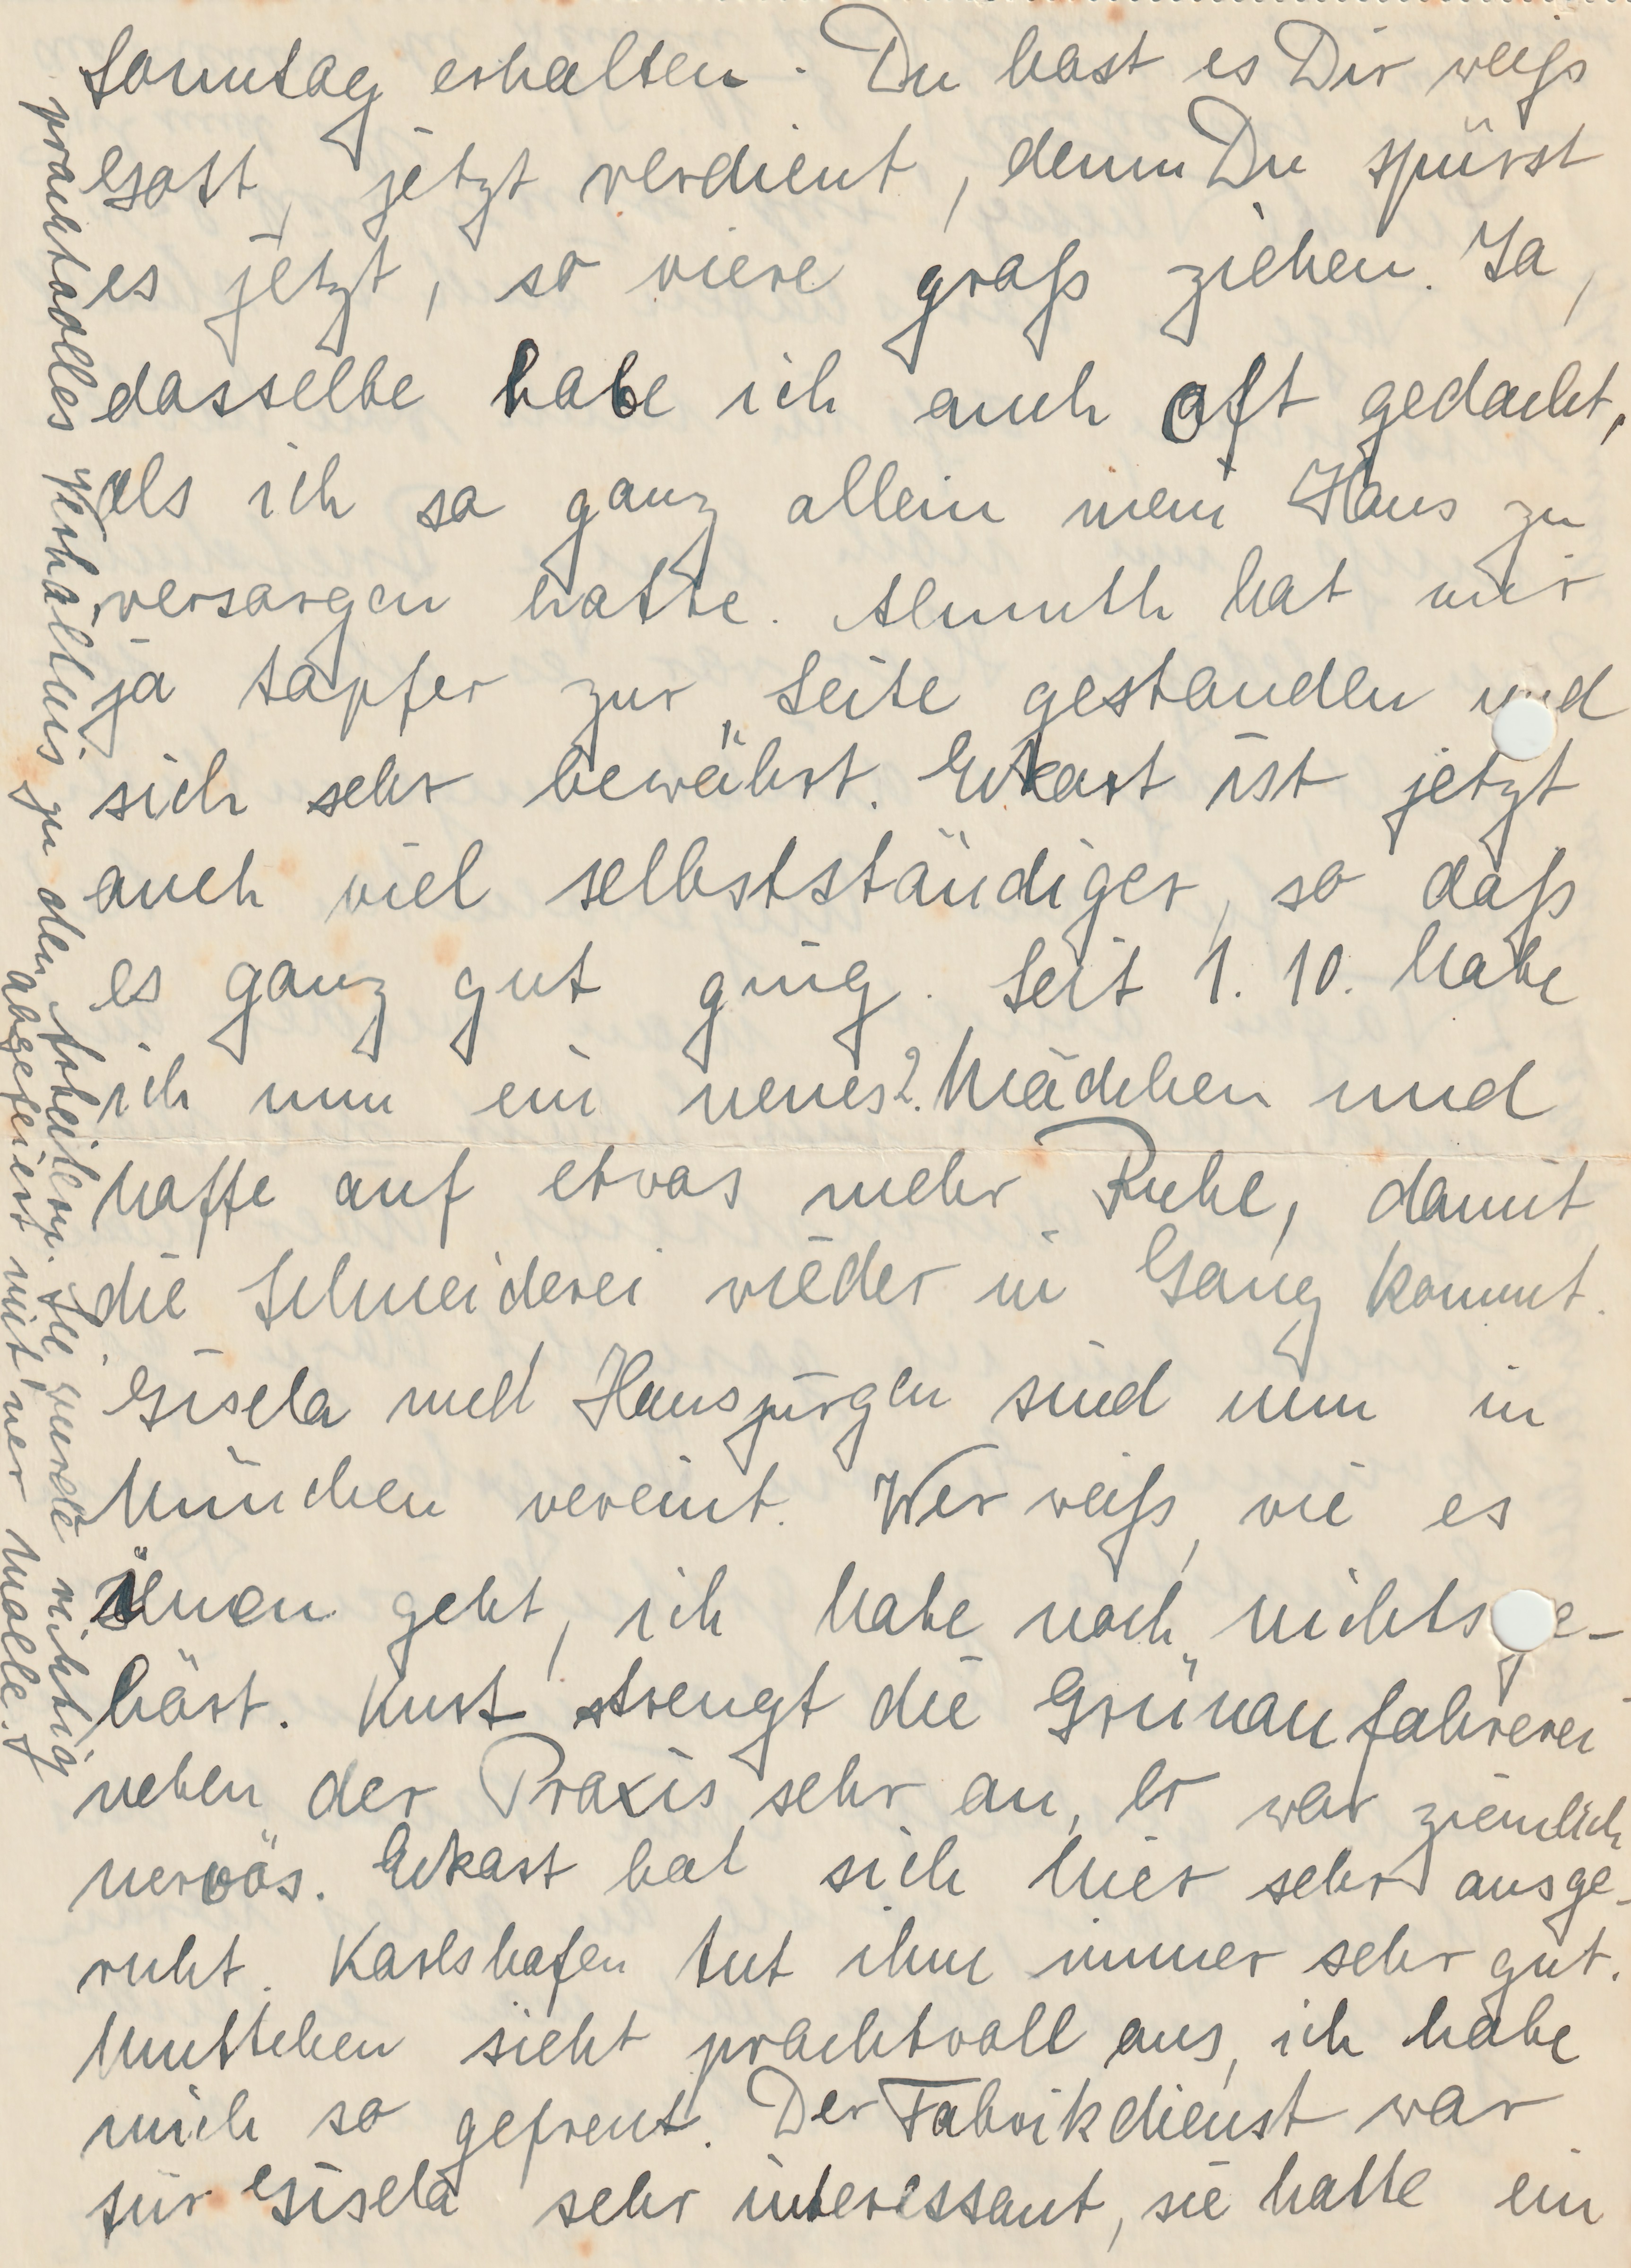 Sonntag erhalten. Du hast es Dir weiß
Gott, jetzt verdient, denn Du spürst
es jetzt, so viere groß ziehen. Ja,
dasselbe habe ich auch oft gedacht,
als ich so ganz allein mein Haus zu
versorgen hatte. Almuth hat mir
ja tapfer zur Seite gestanden und
sich sehr bewährt. Eckart ist jetzt
auch viel selbstständiger, so daß
es ganz gut ging. Seit 1. 10. habe
ich nun ein neues 2. Mädchen und
hoffe auf etwas mehr Ruhe, damit
die Schneiderei wieder in Gang kommt.
Gisela und Hansjürgen sind nun in
München vereint. Wer weiß, wie es
ihnen geht, ich habe noch nichts ge-
hört. Kurt strengt die Grünaufahrerei
neben der Praxis sehr an, er war ziemlich
nervös. Eckart hat sich hier sehr ausge-
ruht. Karlshafen tut ihm immer sehr gut.
Muttchen sieht prachtvoll aus, ich habe
mich so gefreut. Der Fabrikdienst war
für Gisela sehr interessant, sie hatte ein
prachtvolles Verhältnis zu den Arbeitern. Sie wurde richtig
abgefeiert mit 'ner Molle.